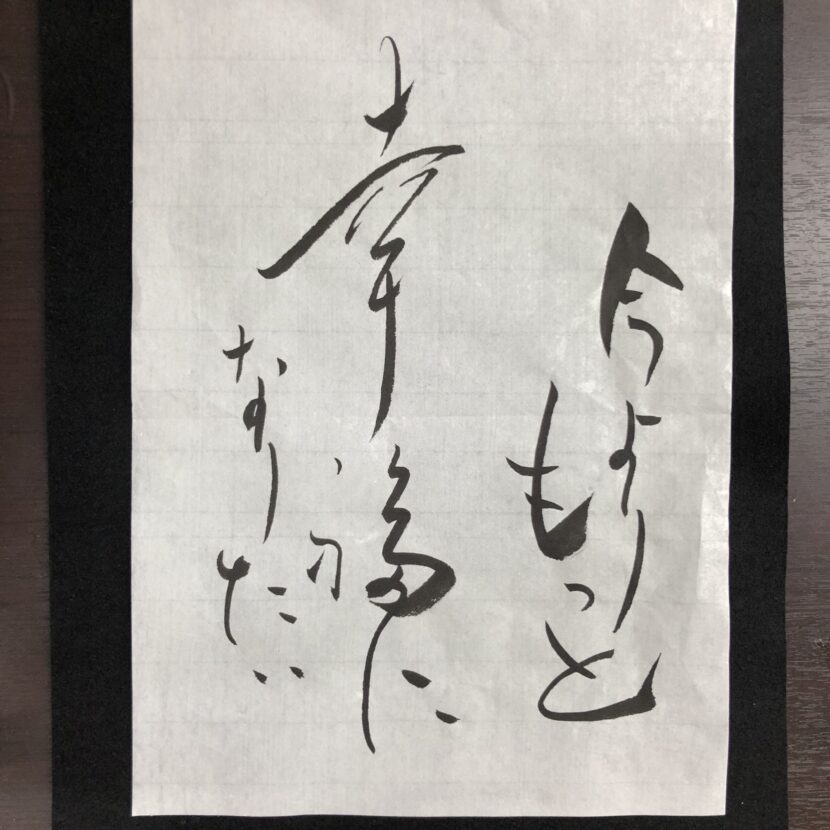 今より
もっと
幸福に
なりたい